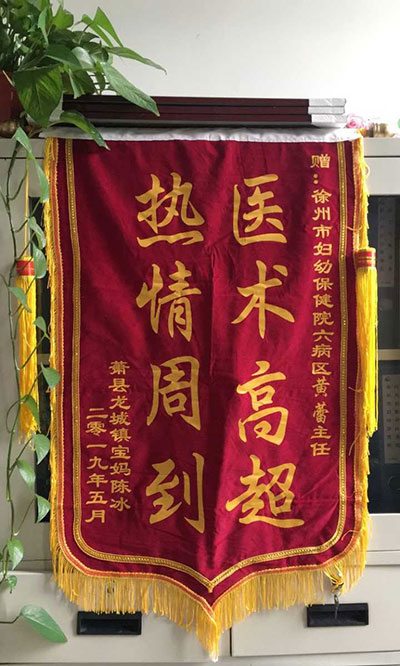 赠：徐州市妇幼保健院六病区黄蕾主任
医术高超
热情周到
萧县龙城镇宝妈陈冰
二零一九年五月